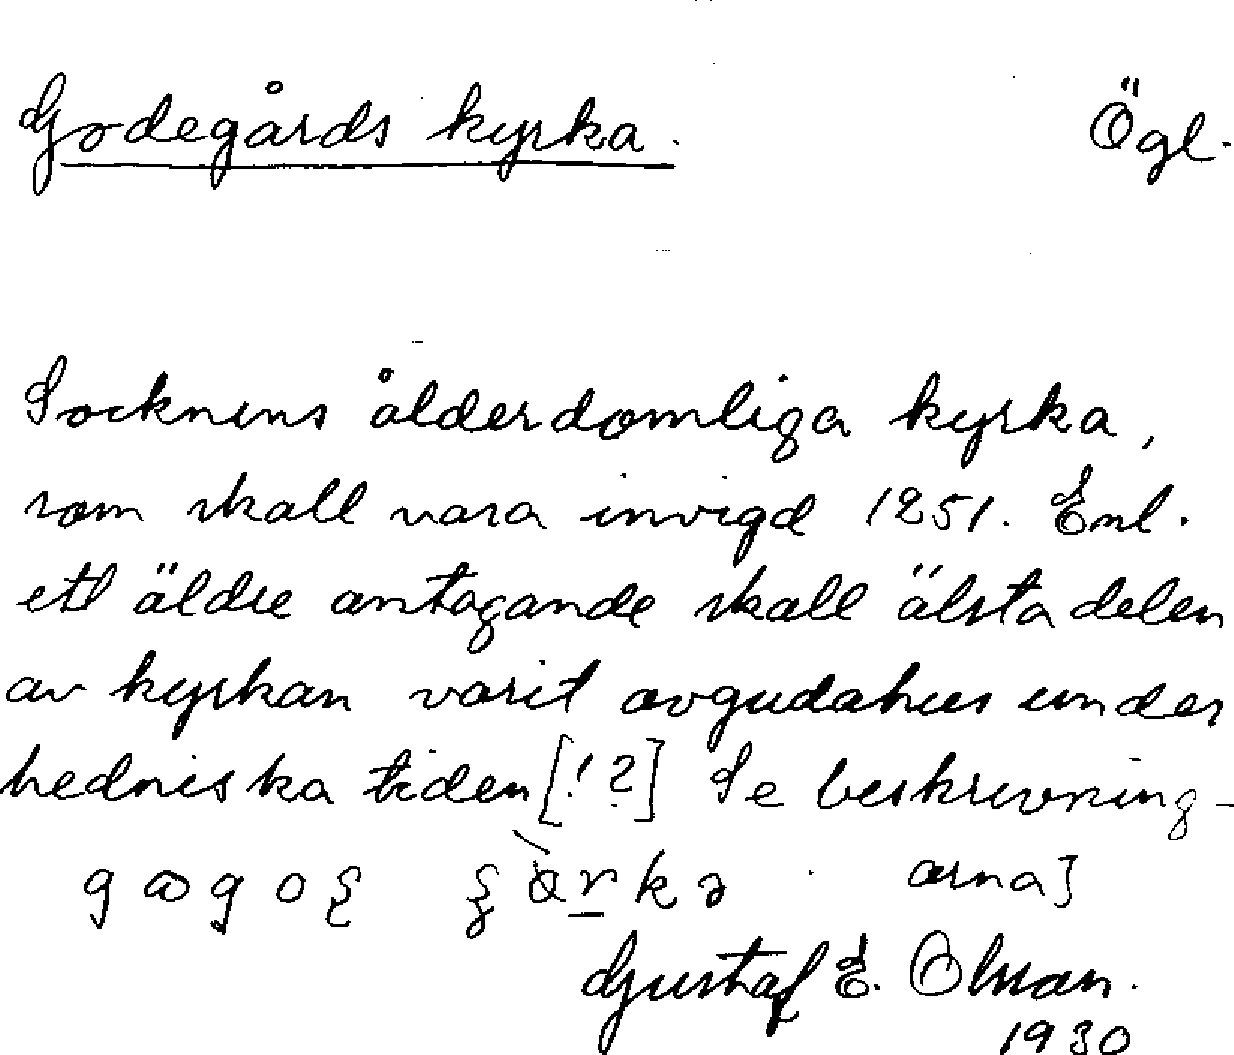 Godegårds kyrka. Ögl.
Socknens ålderdomliga kyrka,
som skall vara invigd 1251. Enl.
ett äldre antagande skall älsta delen
av kyrkan varit avgudahus under
hedniska tiden [!?] Se beskrivning-
arna]
Gustaf E. Olsson.
1930